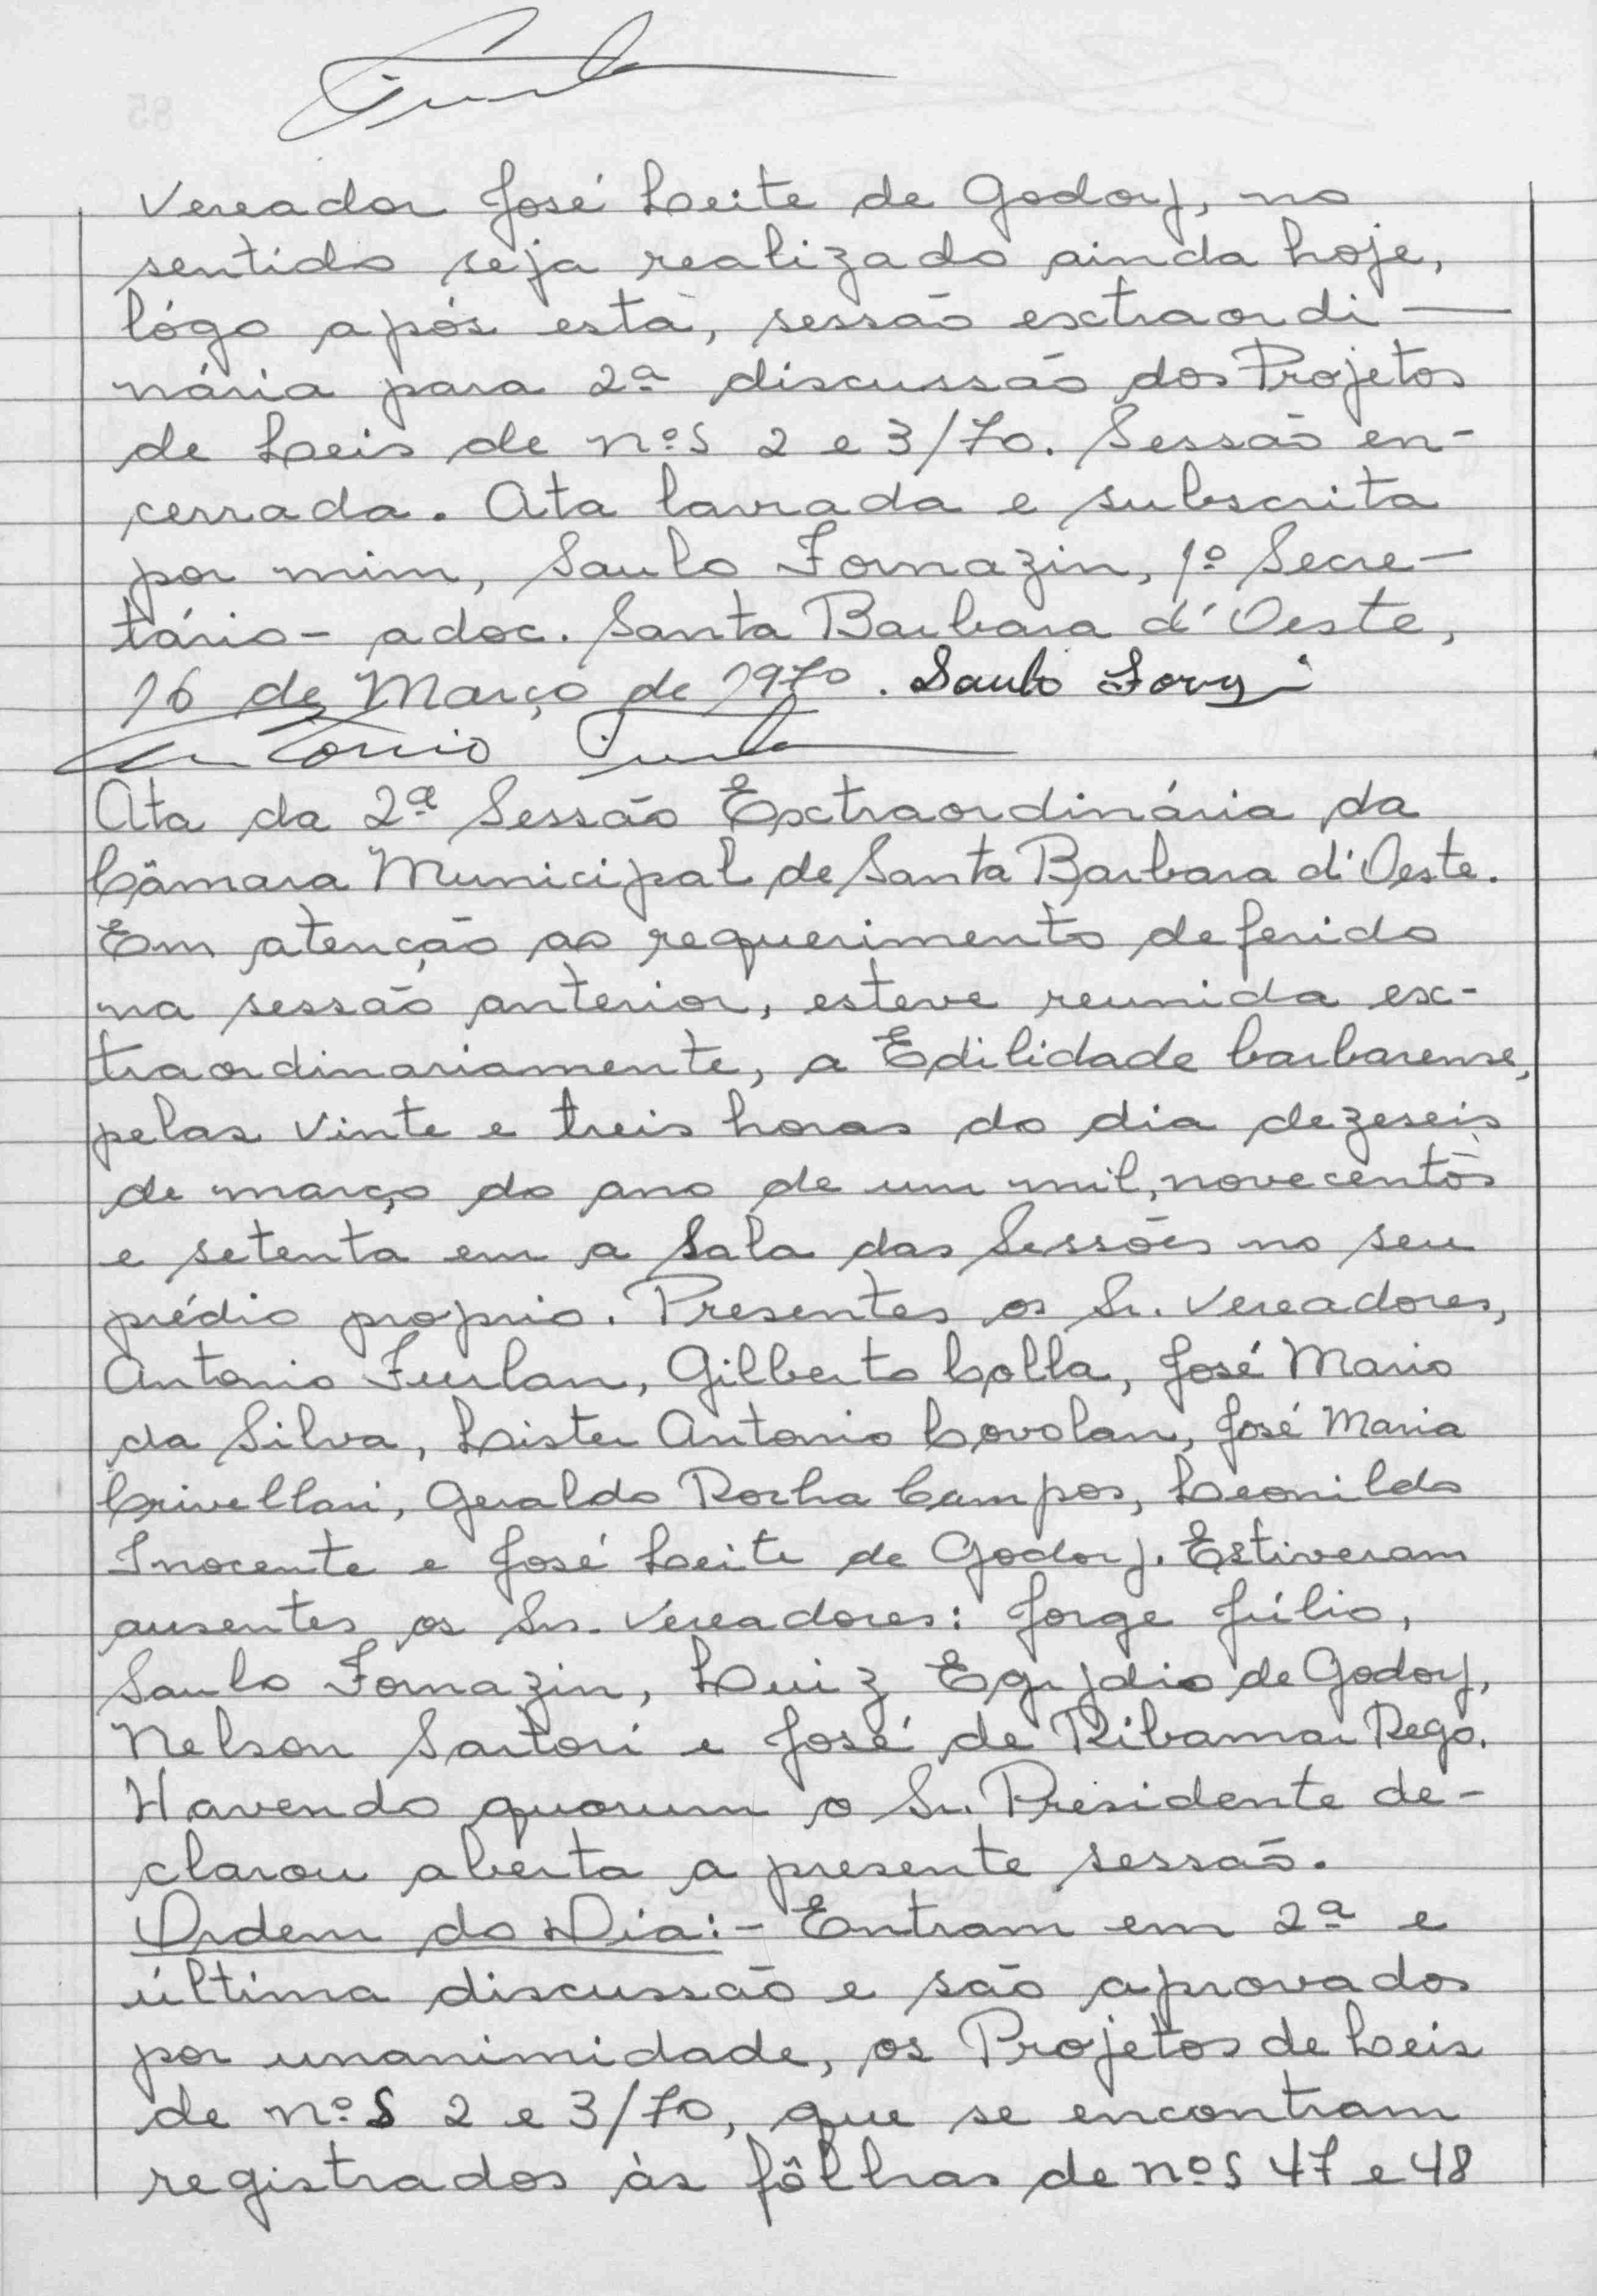 Vereador José Leite de Godoy, no
sentido seja realizado ainda hoje,
lógo após esta, sessão extraordi-
nária para 2ª discussão dos Projetos
de Leis de nºs 2 e 3/70. Sessão en-
cerrada. Ata lavrada e subscrita
por mim, Saulo Fornazin, 1º Secre-
tário - adoc. Santa Barbara d'Oeste,
16 de Março de 1970. Saulo
Antonio
Ata da 2ª Sessão Extraordinária da
Câmara Municipal de Santa Barbara d'Oeste.
Em atenção ao requerimento deferido
na sessão anterior, esteve reunida ex-
traordinariamente, a Edilidade barbarense,
pelas vinte e treis horas do dia dezeseis
de março do ano de um mil, novecentos
e setenta em a Sala das Sessões no seu
prédio proprio. Presentes os Sr. Vereadores,
Antonio Furlan, Gilberto Colla, José Mario
da Silva, Lister Antonio Covolan, José Maria
Crivellari, Geraldo Rocha Campos, Leonildo
Inocente e José Leite de Godoy. Estiveram
ausentes os Srs. Vereadores: Jorge Júlio,
Saulo Fornazin, Luiz Egydio de Godoy,
Nelson Sartori e José de Ribamar Rego.
Havendo quorum o Sr. Presidente de-
clarou aberta a presente sessão.
Ordem do Dia:- Entram em 2ª e
última discussão e são aprovados
por unanimidade, os Projetos de Leis
de nºs 2 e 3/70, que se encontram
registrados às fôlhas de nºs 47 e 48